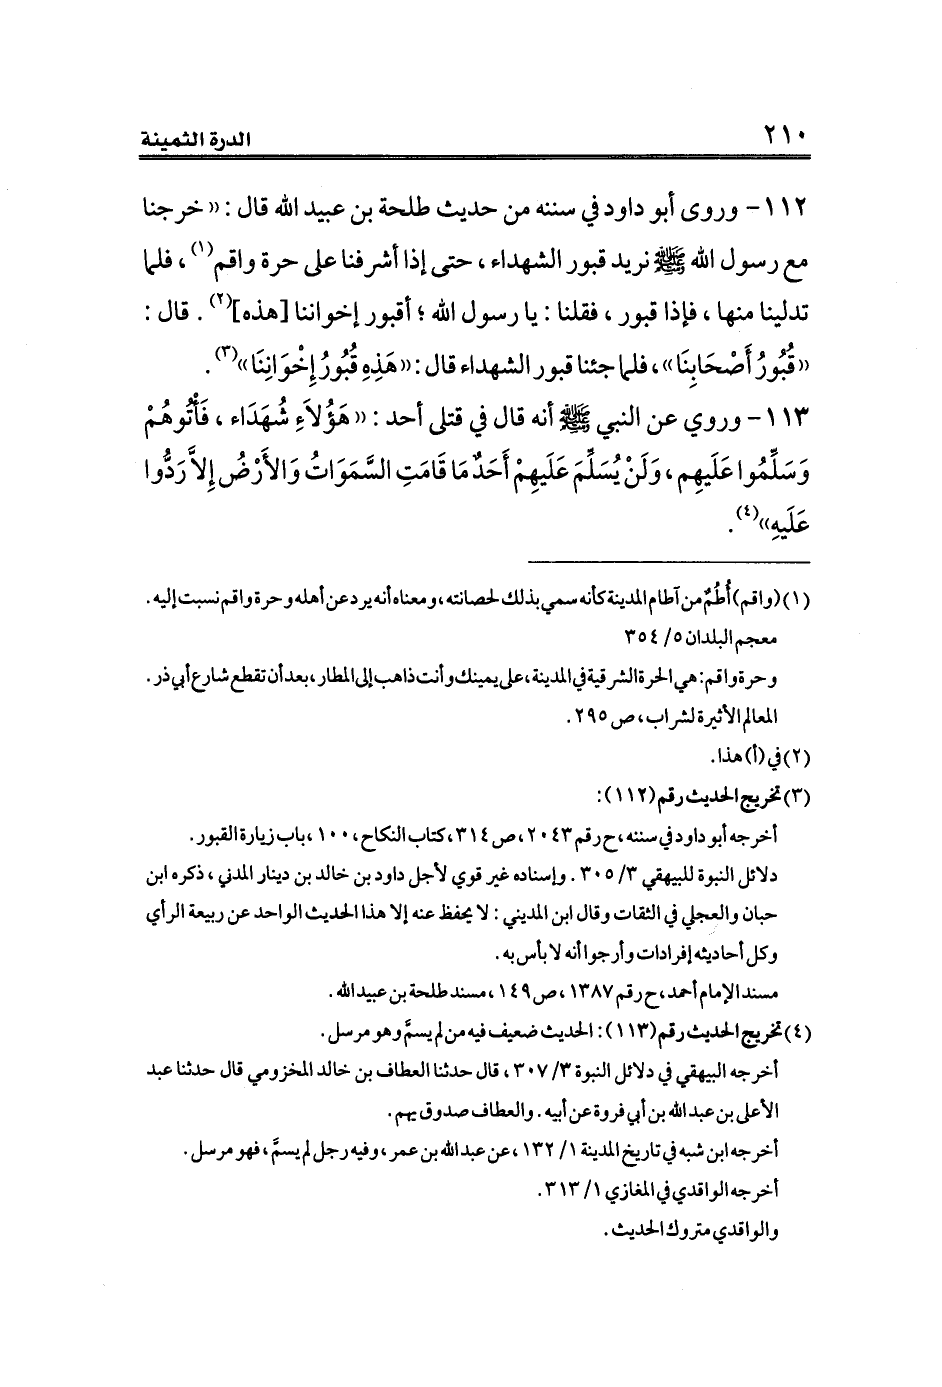 ٢١٠ الدرة الثمينة
١١٢- وروى أبو داود في سننه من حديث طلحة بن عبيد الله قال : « خرجنا
مع رسول الله ﷺ نريد قبور الشهداء ، حتى إذا أشرفنا على حرة واقم(١) ، فلما
تدلينا منها ، فإذا قبور ، فقلنا : يا رسول الله ؛ أقبور إخواننا [هذه](٢) . قال :
« قُبُورُ أَصْحَابِنَا » ، فلما جئنا قبور الشهداء قال : « هَذِهِ قُبُورُ إِخْوَانِنَا »(٣) .
١١٣- وروي عن النبي ﷺ أنه قال في قتلى أحد : « هَؤُلاَءِ شُهَدَاء ، فَأْتُوهُمْ
وَسَلِّمُوا عَلَيهِم ، وَلَنْ يُسَلِّمَ عَلَيهِمْ أَحَدٌ مَا قَامَتِ السَّمَوَاتُ وَالأَرْضُ إِلاَّ رَدُّوا
عَلَيهِ »(٤) .
(١) (واقم) أُطُمٌ من آطام المدينة كأنه سمي بذلك لحصانته ، ومعناه أنه يرد عن أهله وحرة واقم نسبت إليه .
معجم البلدان ٥/ ٣٥٤
وحرة واقم : هي الحرة الشرقية في المدينة ، على يمينك وأنت ذاهب إلى المطار ، بعد أن تقطع شارع أبي ذر .
المعالم الأثيرة لشراب ، ص ٢٩٥ .
(٢) في (أ) هذا .
(٣) تخريج الحديث رقم (١١٢) :
أخرجه أبو داود في سننه ، ح رقم ٢٠٤٣ ، ص ٣١٤ ، كتاب النكاح ، ١٠٠ ، باب زيارة القبور .
دلائل النبوة للبيهقي ٣/ ٣٠٥ . وإسناده غير قوي لأجل داود بن خالد بن دينار المدني ، ذكره ابن
حبان والعجلي في الثقات وقال ابن المديني : لا يحفظ عنه إلا هذا الحديث الواحد عن ربيعة الرأي
وكل أحاديثه إفرادات وأرجوا أنه لا بأس به .
مسند الإمام أحمد ، ح رقم ١٣٨٧ ، ص ١٤٩ ، مسند طلحة بن عبيد الله .
(٤) تخريج الحديث رقم (١١٣) : الحديث ضعيف فيه من لم يسمَّ وهو مرسل .
أخرجه البيهقي في دلائل النبوة ٣/ ٣٠٧ ، قال حدثنا العطاف بن خالد المخزومي قال حدثنا عبد
الأعلى بن عبد الله بن أبي فروة عن أبيه . والعطاف صدوق يهم .
أخرجه ابن شبه في تاريخ المدينة ١/ ١٣٢ ، عن عبد الله بن عمر ، وفيه رجل لم يسمَّ ، فهو مرسل .
أخرجه الواقدي في المغازي ١/ ٣١٣ .
والواقدي متروك الحديث .